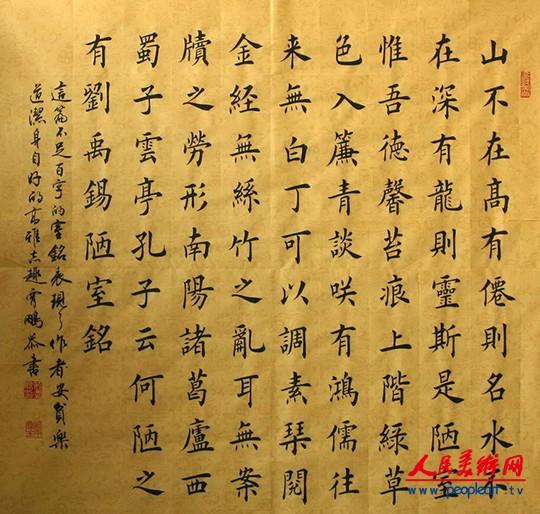 山不在髙有僊則名水不
在深有龍則靈斯是陋室
惟吾徳馨苔痕上階緑草
色入簾青談咲有鴻儒往
来無白丁可以調素琴閲
金経無絲竹之亂耳無案
牘之勞形南陽諸葛廬西
蜀子雲亭孔子云何陋之
有劉禹錫陋室銘
這篇不足百字的室銘表現了作者安貧樂
道潔身自好的高雅志趣霄鵬恭書
人民美术网
www.peopleart.tv